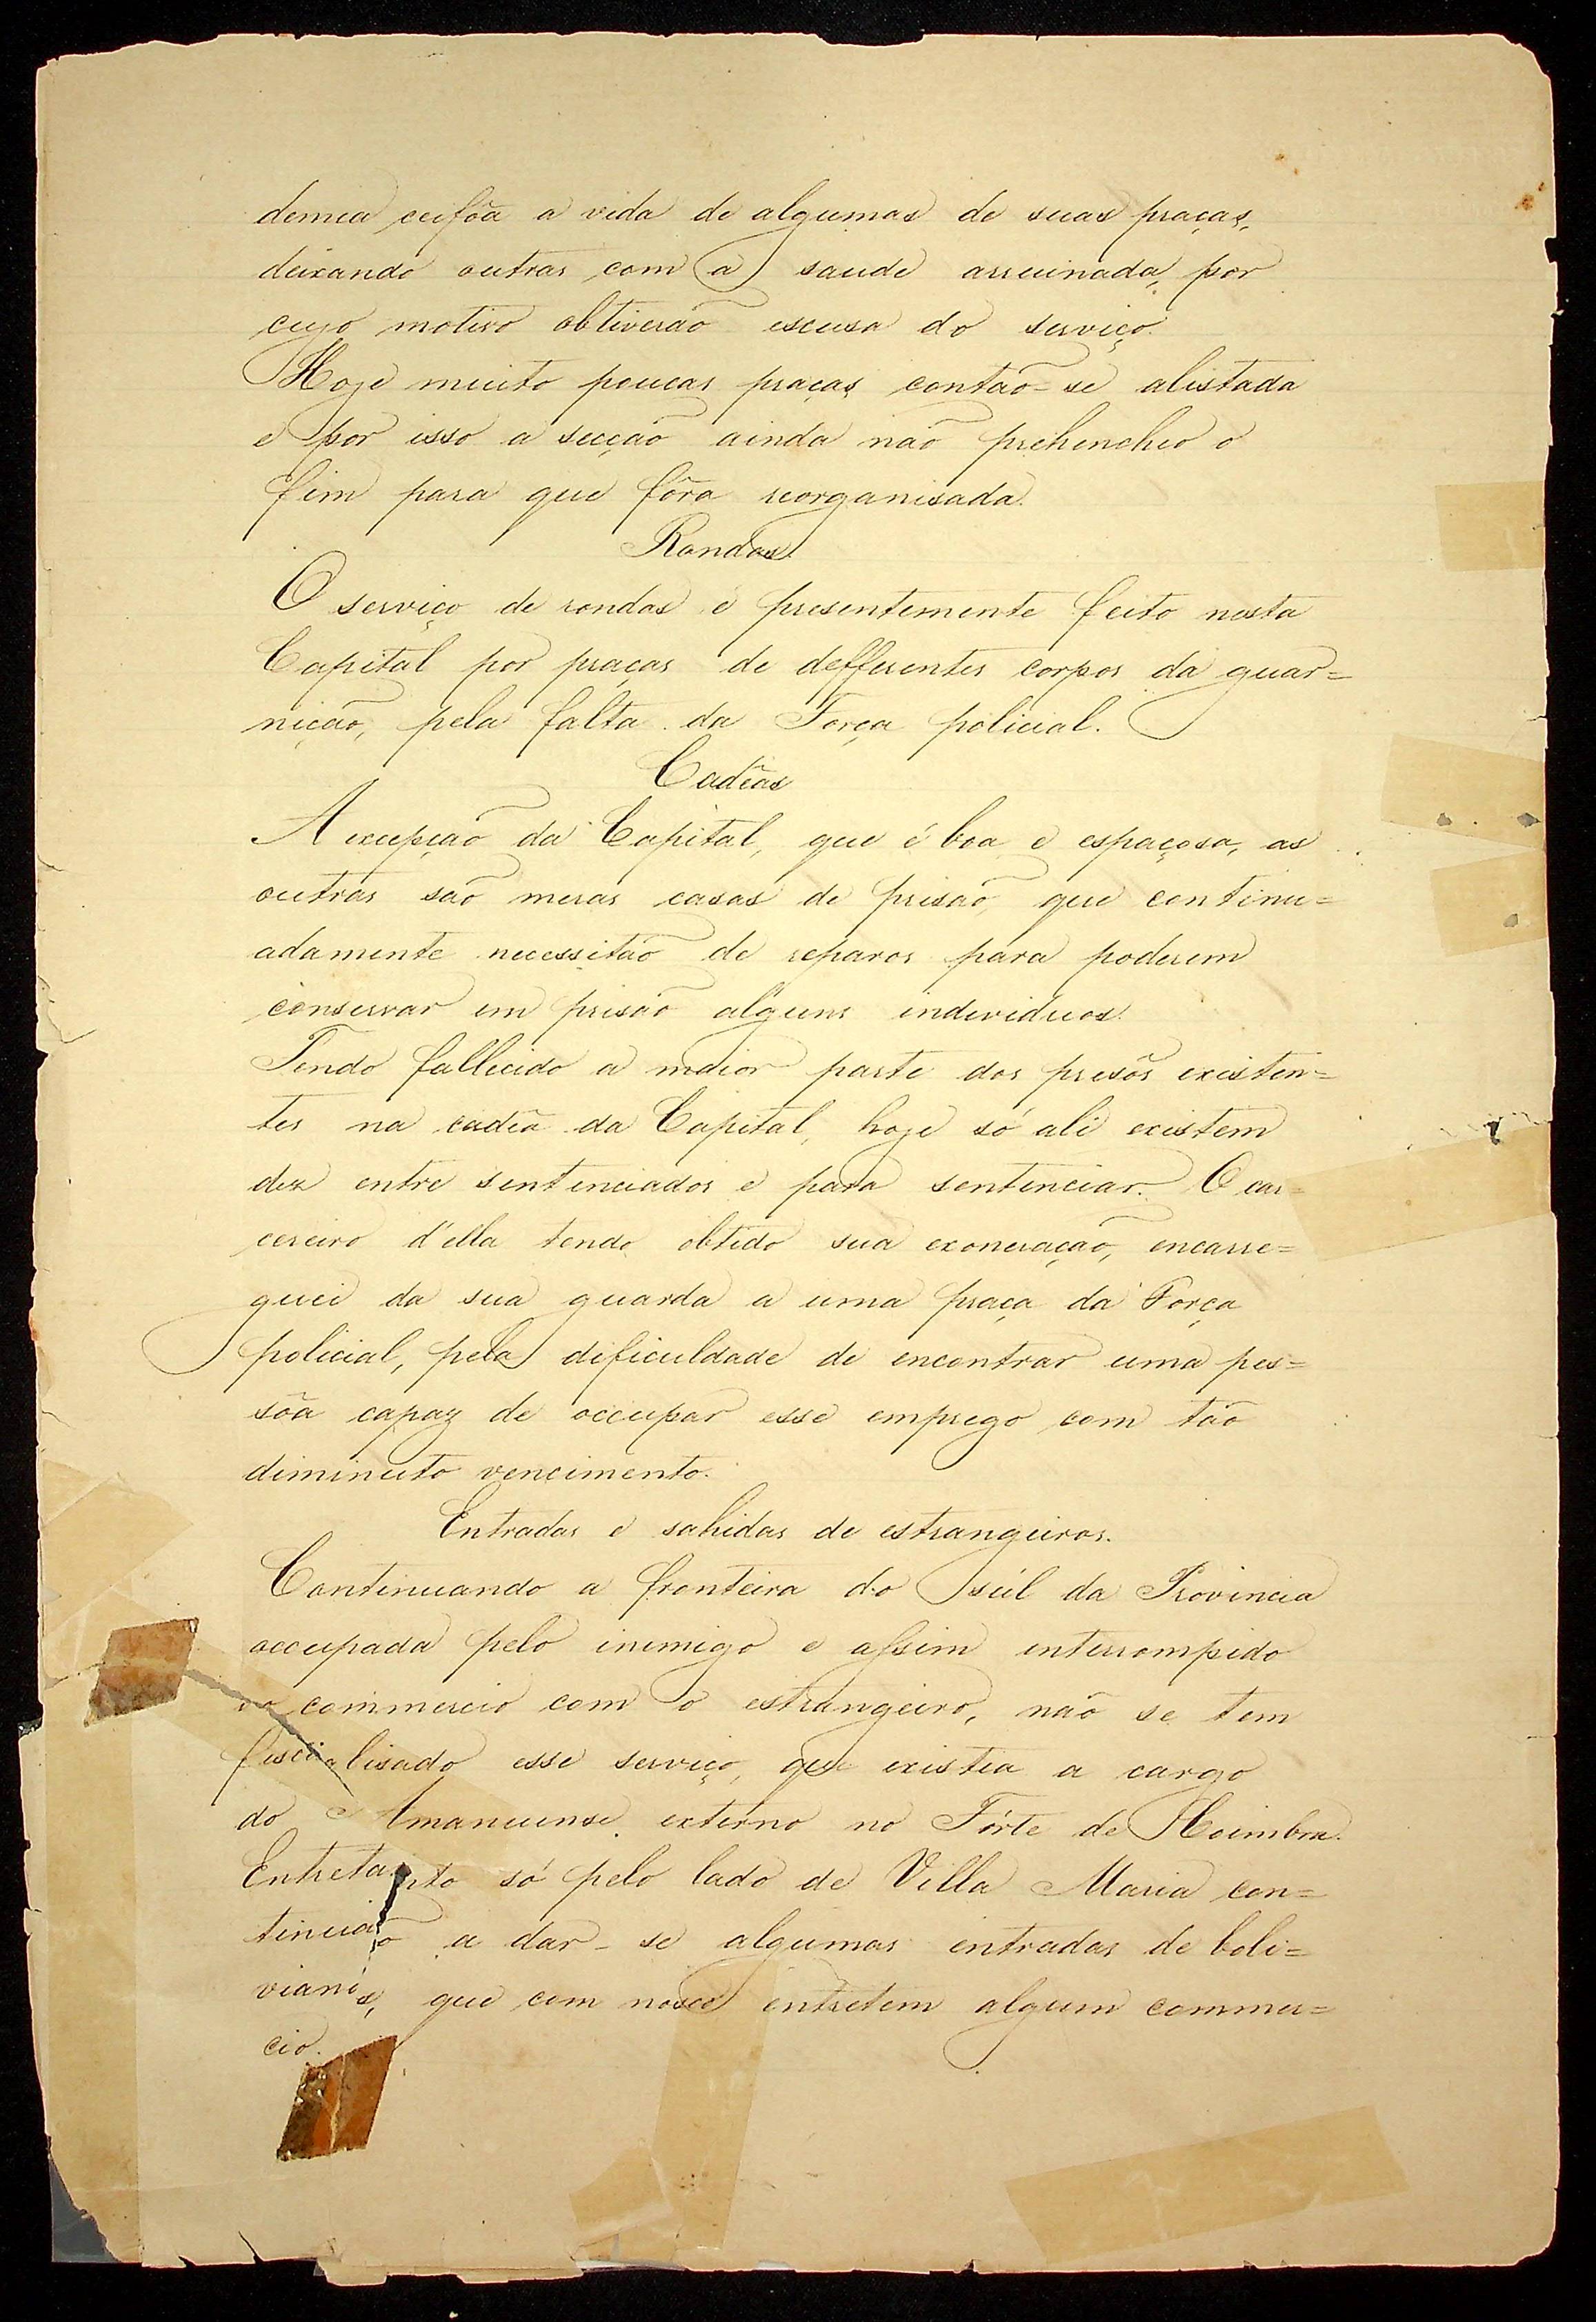 demia ceifôa a vida de algumas de suas praças,
deixando outras com a saude arruinada, por
cujo motivo obtiverão escusa do serviço.
Hoje muito poucas praças contão-se alistada
e por isso a secção ainda não prehencheo o
fim para que fôra reorganisada.
Rondas
O serviço de rondas é presentemente feito nesta
Capital por praças de defferentes corpos da guar=
nição, pela falta da Força policial.
Cadêas
A excepção da Capital, que é boa e espaçosa, as
outras são meras casas de prisão, que continu=
adamente necessitão de reparos para poderem
conservar em prisão alguns individuos.
Tendo fallecido a maior parte dos presôs existen=
tes na cadêa da Capital, hoje só ali existem
dez entre sentenciados e para sentenciar. O car=
cereiro d'ella tendo obtido sua exoneração, encarre=
guei da sua guarda a uma praça da Força
policial, pela dificuldade de encontrar uma pes=
sôa capaz de occupar esse emprego com tão
diminuto vencimento.
Entradas e sahidas de estrangeiros.
Continuando a fronteira do súl da Provincia
occupada pelo inimigo e assim interrompido
o commercio com o estrangeiro, não se tem
fiscalisado esse serviço, que existia a cargo
do Amanuense externo no Fórte de Coimbra.
Entretanto só pelo lado de Villa Maria con=
tinuão a dar-se algumas entradas de boli=
vianos, que com nosco entretem algum commer=
cio.